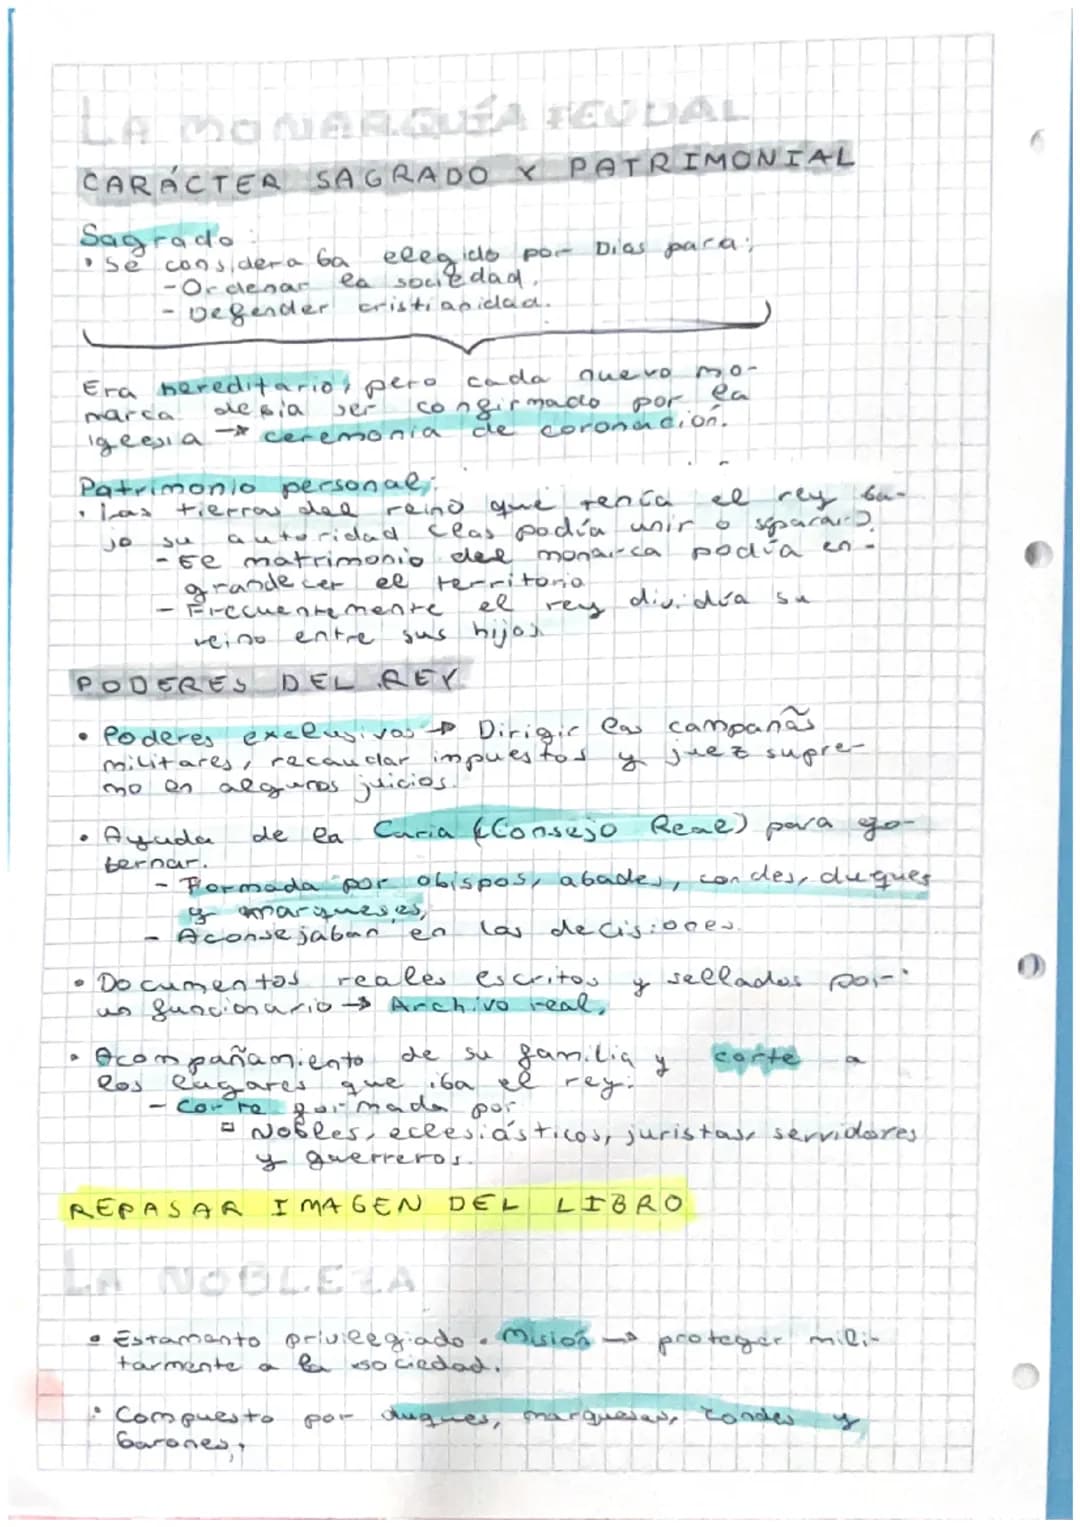 LA MONARQUÍA FEUDAL
CARÁCTER SAGRADO Y PATRIMONIAL
Sagrado:
• Se consideraba elegido por Dios para:
- Ordenar la sociedad.
- Defender cristianidad.
Era hereditario, pero cada nuevo mo-
narca debía ser confirmado por la
iglesia → ceremonia de coronación.
Patrimonio personal:
• Las tierras del reino que tenía el rey ba-
jo su autoridad (las podía unir o separar).
- El matrimonio del monarca podía en-
grandecer el territorio
- Frecuentemente el rey dividía su
reino entre sus hijos.
PODERES DEL REY
• Poderes exclusivos → Dirigir las campañas
militares, recaudar impuestos y juez supre-
mo en algunos juicios.
• Ayuda de la Curia (Consejo Real) para go-
bernar.
- Formada por obispos, abades, condes, duques
y marqueses,
- Aconsejaban en las decisiones.
• Documentos reales escritos y sellados por
un funcionario → Archivo real,
• Acompañamiento de su familia y corte a
los lugares que iba el rey:
- Corte formada por
▫ Nobles, eclesiásticos, juristas, servidores
y guerreros.
REPASAR IMAGEN DEL LIBRO
LA NOBLEZA
• Estamento privilegiado. Misión → proteger mili-
tarmente a la sociedad.
• Compuesto por duques, marqueses, condes y
barones,